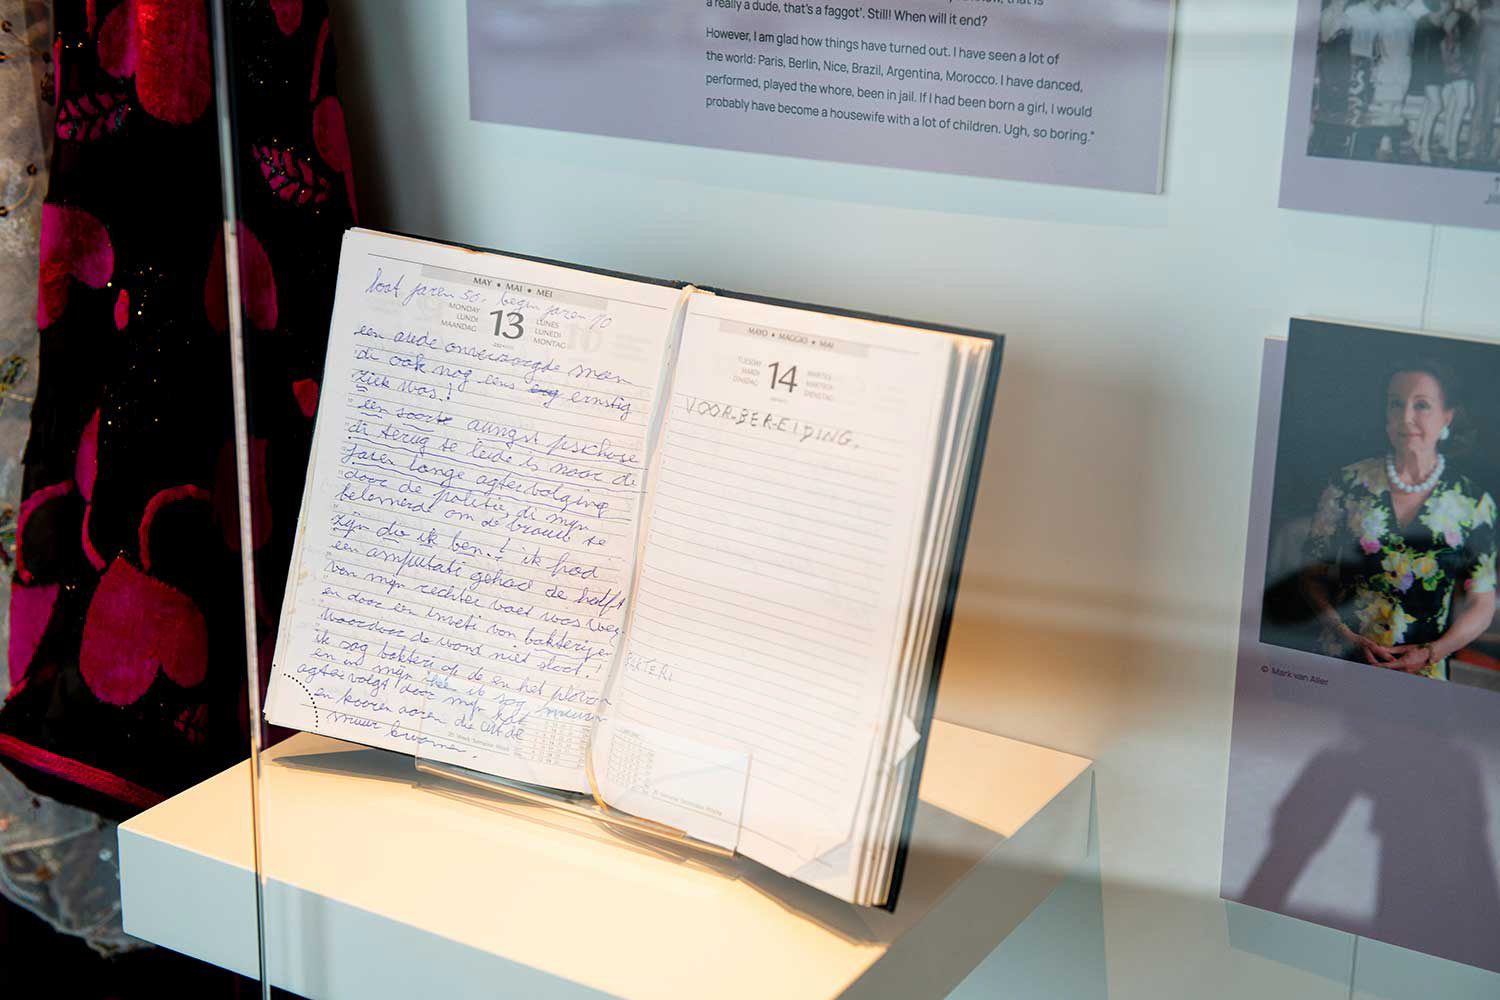 a really a dude, that's a faggot'. Still! When will it end?
However, I am glad how things have turned out. I have seen a lot of
the world: Paris, Berlin, Nice, Brazil, Argentina, Morocco. I have danced,
performed, played the whore, been in jail. If I had been born a girl, I would
probably have become a housewife with a lot of children. Ugh, so boring."
MAY • MAI • MEI
laat jaren 50. begin jaren 70
MONDAY LUNDI MAANDAG
13
LUNES LUNEDI MONTAG
een oude onverzorgde man
di ook nog eens erg ernstig
ziek was!
een soort aungst psichose
di terug te leide is naar de
jaren lange agtervolging
door de politie, di mijn
belemerde om de vrouw te
zijn die ik ben.! ik had
een amputati gehad de helft
van mijn rechter voet was weg.
en door een inveti van bakterijen
waardoor de wond niet sloot!
ik zag bakteri op de en het plavon
en in mijn ik zag
agtervolgt door mijn
en horen aoren die uit de
muur kwamen.
MAYO • MAGGIO • MAI
TUESDAY MARDI DINSDAG
14
MARTES MARTEDI DIENSTAG
VOORBEREIDING.
BAKTERI
© Mark van Aller